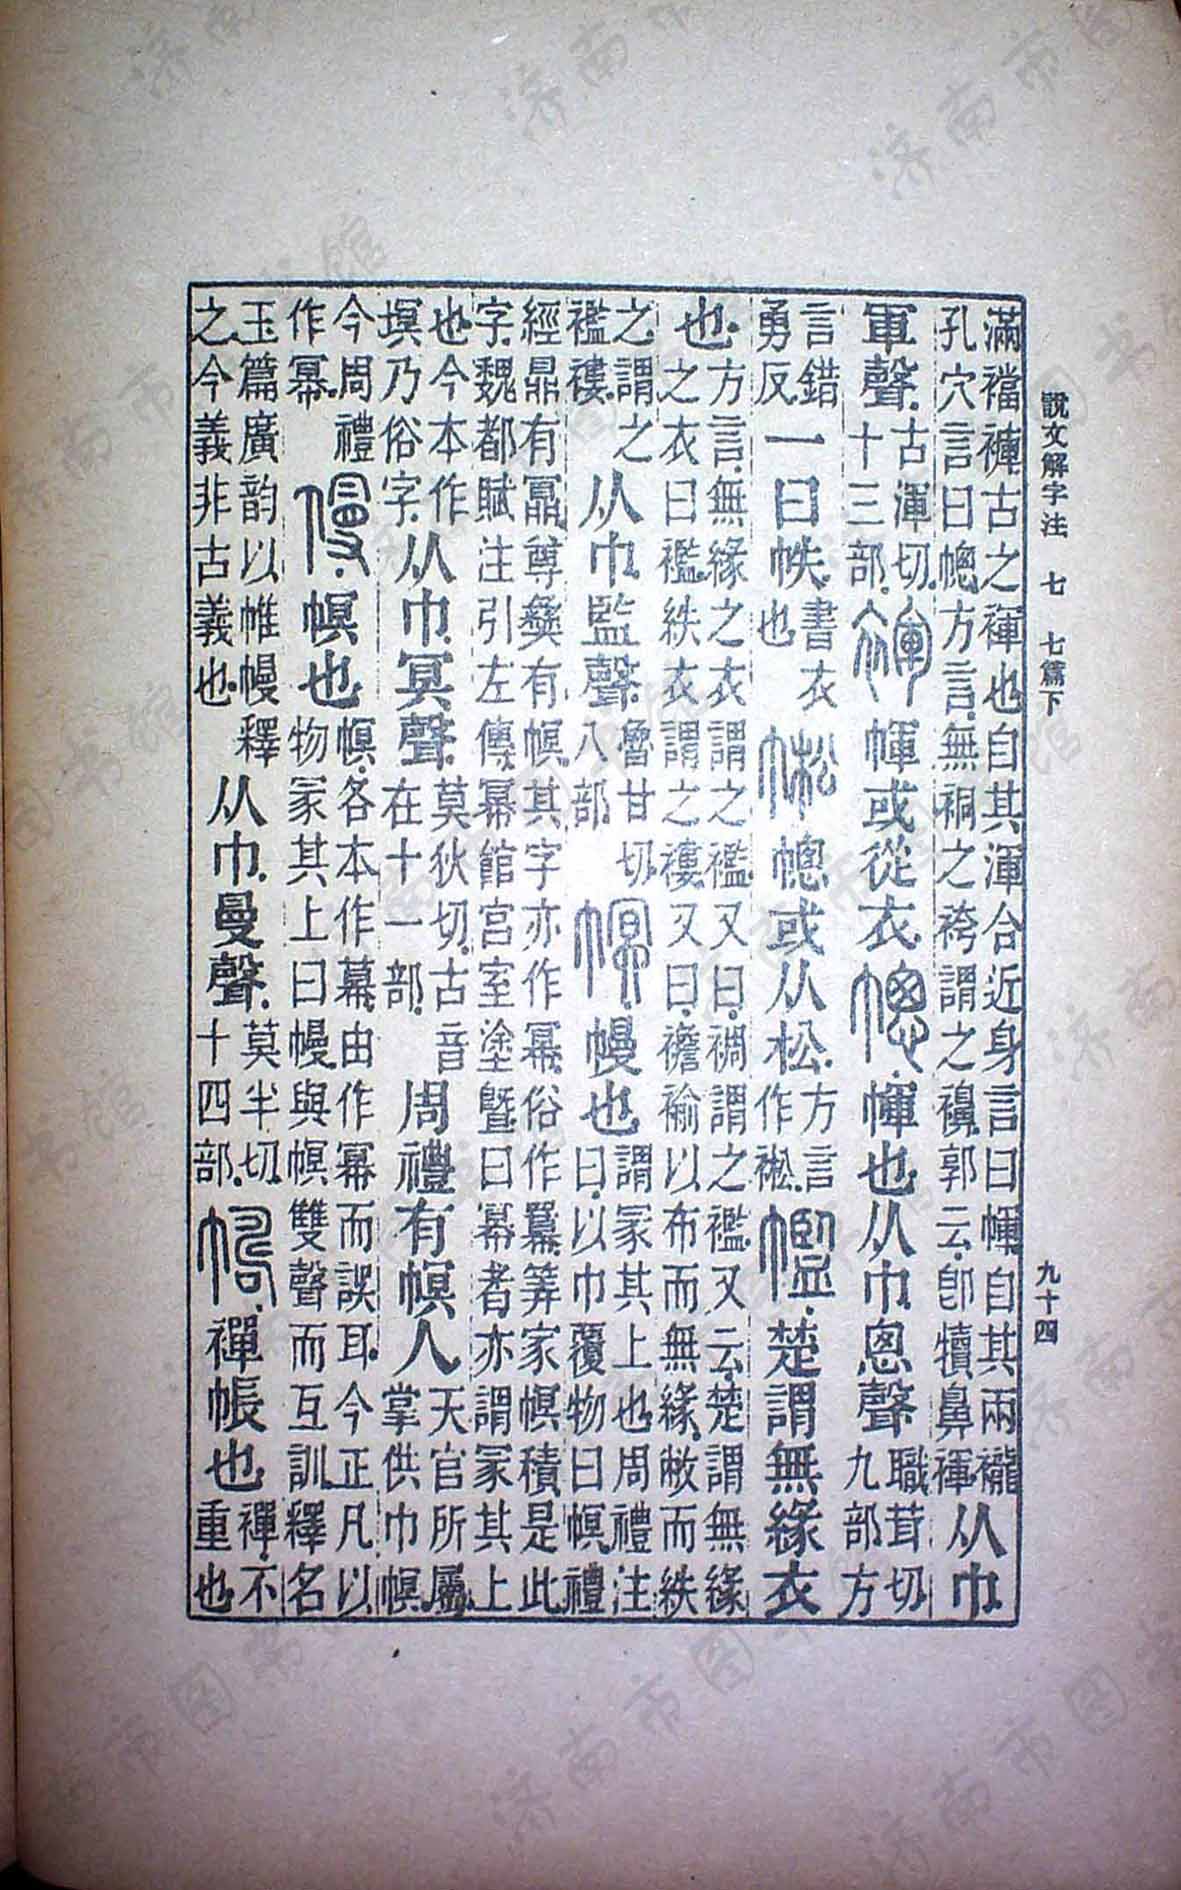 說文解字注 七 七篇下 九十四
滿襠褲古之褌也自其渾合近身言曰㡓自其兩襱
孔穴言曰幒方言無裥之袴謂之襣郭云卽犢鼻褌
从巾
軍聲
古渾切
十三部
褌㡓或從衣幒㡓也从巾悤聲
職茸切
九部方
言錯
勇反
一曰帙
書衣
也
㡆幒或从松
方言
作衳
㡮楚謂無緣衣
也
方言無緣之衣謂之襤又曰裯謂之襤又云楚謂無緣
之衣曰襤紩衣謂之褸又曰襜褕以布而無緣敝而紩
之謂之
襤褸
从巾監聲
魯甘切
八部
幎幔也
謂冡其上也周禮注
曰以巾覆物曰幎禮
經鼎有鼏尊彝有幎其字亦作冪俗作羃筭家幎積是此
字魏都賦注引左傳冪館宮室塗曁曰冪者亦謂冡其上
也今本作
塓乃俗字
从巾冥聲
莫狄切古音
在十一部
周禮有幎人
天官所屬
掌供巾幎
今周禮
作冪
幔幎也
幎各本作幕由作冪而誤耳今正凡以
物冡其上曰幔與幎雙聲而互訓釋名
玉篇廣韵以帷幔釋
之今義非古義也
从巾曼聲
莫半切
十四部
幬襌帳也
襌不
重也
济南市图书馆